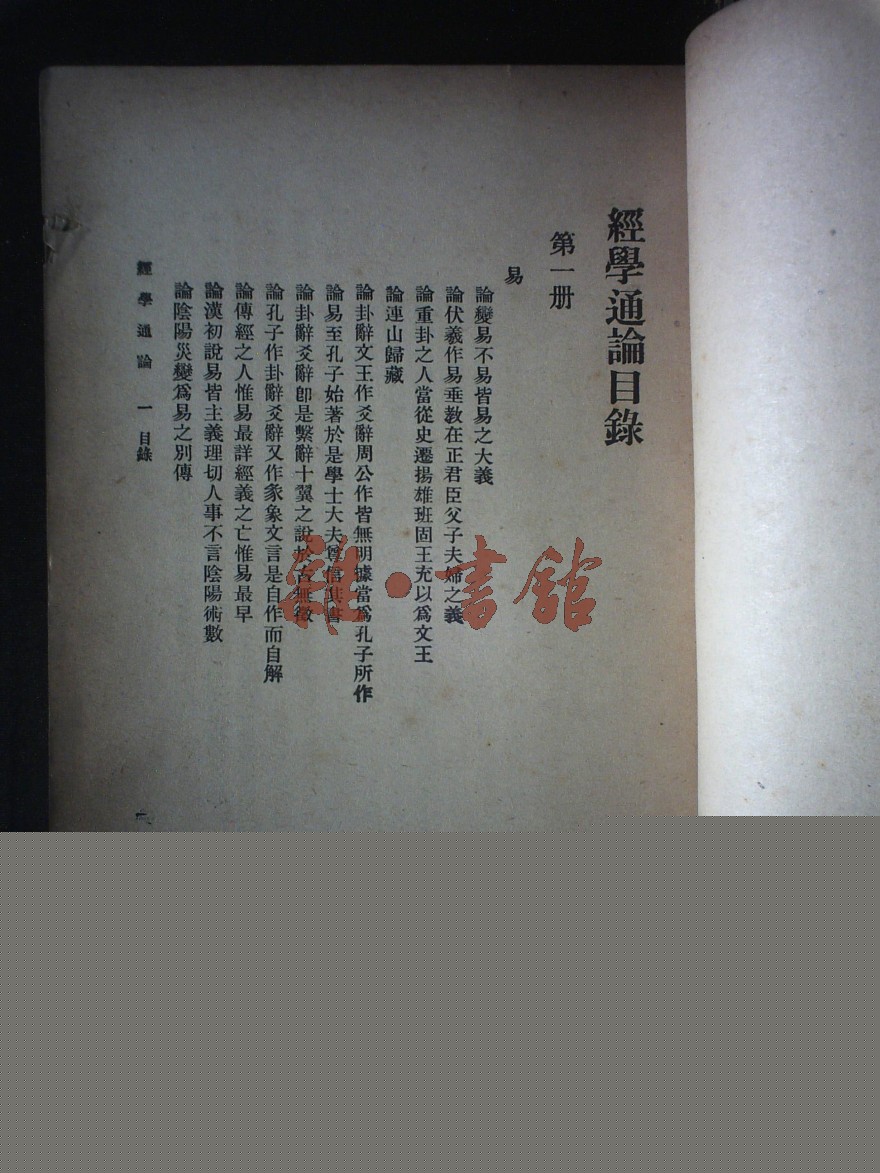 經學通論目錄
第一册
易
論變易不易皆易之大義
論伏羲作易垂教在正君臣父子夫婦之義
論重卦之人當從史遷揚雄班固王充以爲文王
論連山歸藏
論卦辭文王作爻辭周公作皆無明據當爲孔子所作
論易至孔子始著於是學士大夫尊信其書
論卦辭爻辭卽是繫辭十翼之說於古無徵
論孔子作卦辭爻辭又作彖象文言是自作而自解
論傳經之人惟易最詳經義之亡惟易最早
論漢初說易皆主義理切人事不言陰陽術數
論陰陽災變爲易之別傳
經學通論 一 目錄
一
雜·書館